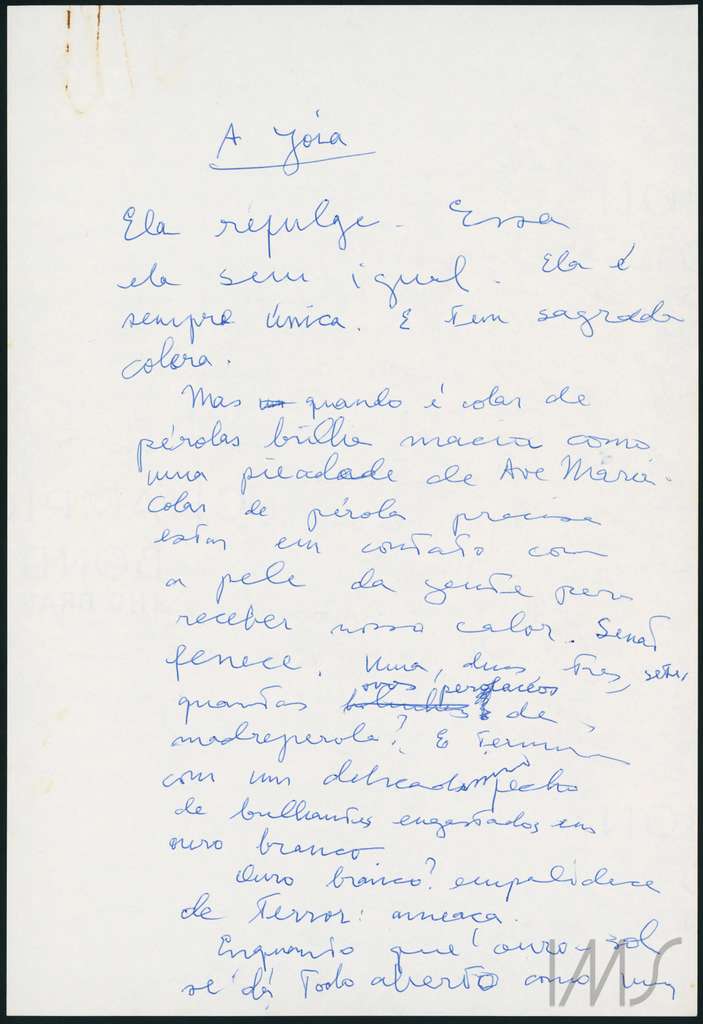 A jóia
Ela refulge. Essa
ela sem igual. Ela é
sempre única. E tem sagrada
colera.
Mas quando é colar de
pérolas brilha macia como
uma piedade de Ave Maria.
Colar de pérola precisa
estar em contato com
a pele da gente para
receber nosso calor. Senão
fenece. Uma, duas, tres, sete,
ovos perfaceos
quantas de
madreperola? E termina
com um delicado fecho
de brilhantes engastados em
ouro branco
Ouro branco? empalidece
de terror: ameaça.
Enquanto que ouro-sol
se dá todo aberto como um
IMS